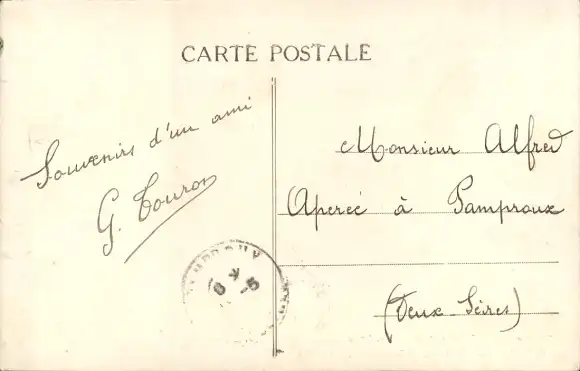 CARTE POSTALE
Souvenirs d'un ami
G. Touron
Monsieur Alfred
Apercé à Pamproux
(Deux Sèvres)
8 5